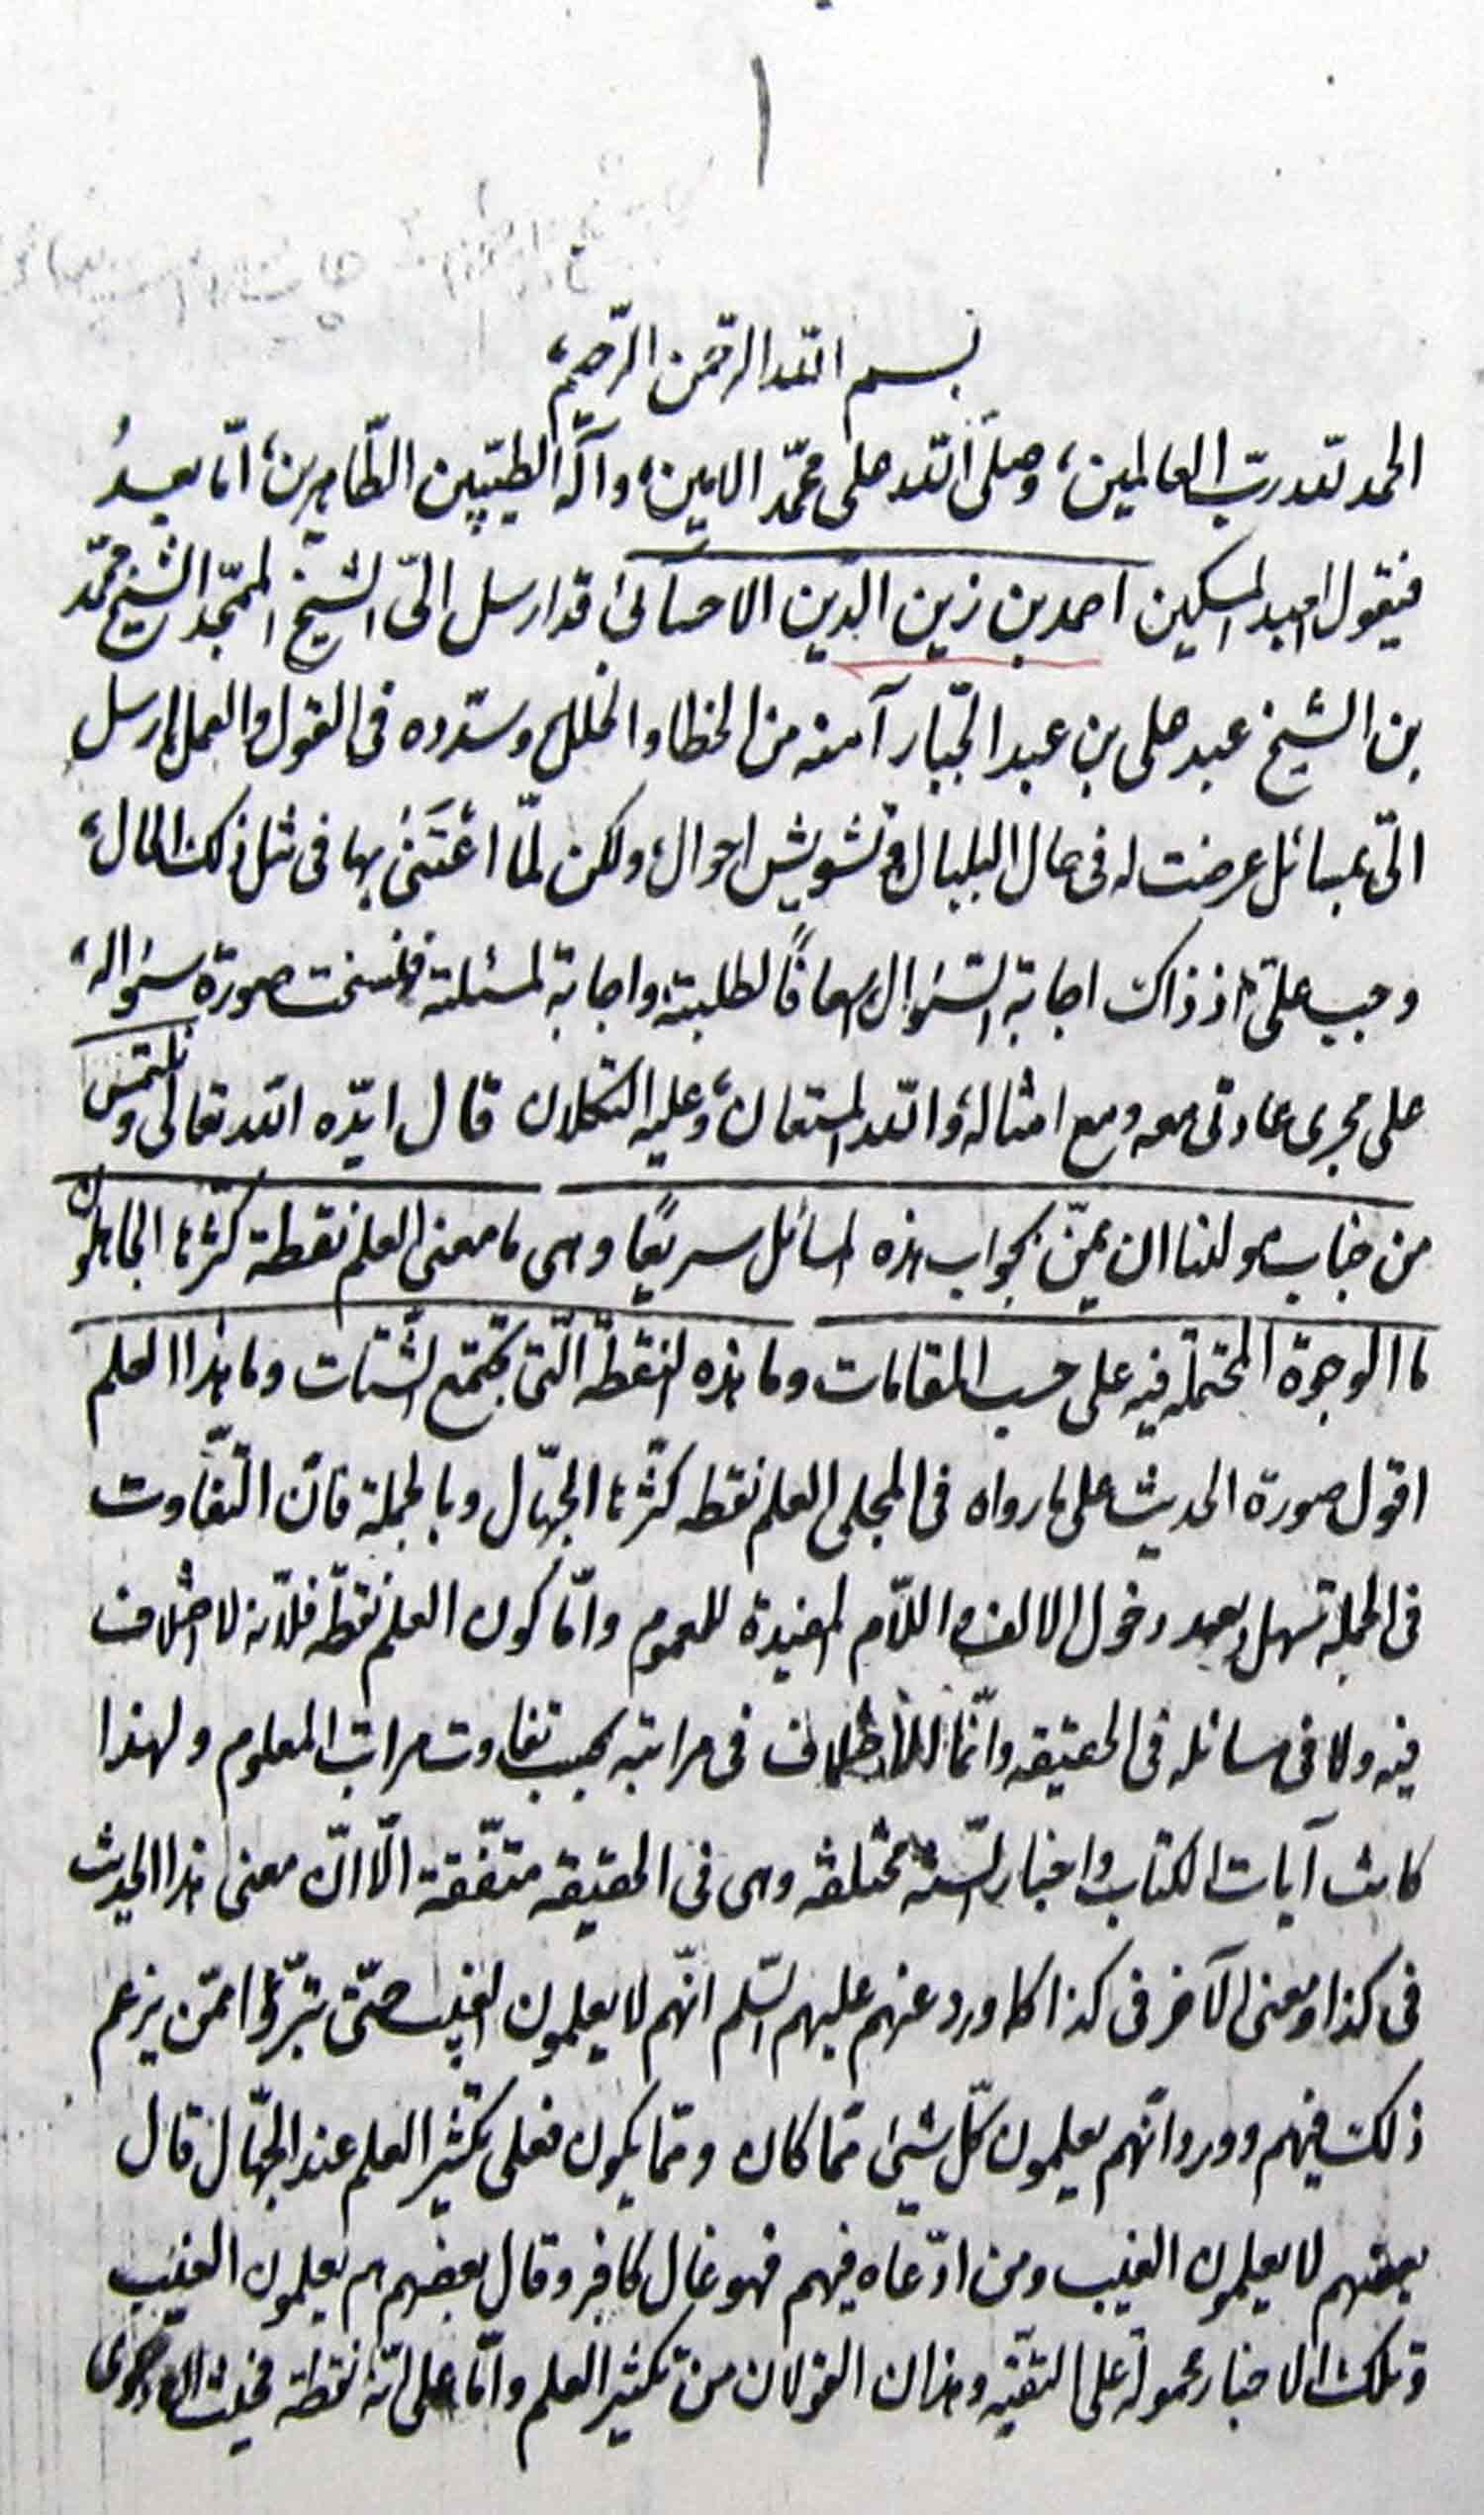 ١
بسم الله الرحمن الرحيم
الحمد لله رب العالمين، وصلى الله على محمد الامين، وآله الطيبين الطاهرين، امّا بعدُ
فيقول العبد المسكين احمد بن زين الدين الاحسائى قد ارسل الىّ الشيخ الممجّد الشيخ محمّد
بن الشيخ عبد على بن عبد الجبّار آمنه من الخطا والخلل وسدّده فى القول والعمل ارسل
الىّ بمسائل عرضت له فى حال البلبال وتشويش احوال، ولكن لمّا اعتنى بها فى مثل ذلك الحال،
وجب علىّ اذ ذاك اجابة السؤال اسعافًا لطلبته واجابة لمسئلته فنسخت صورة سؤاله،
على مجرى عادتى معه ومع امثاله، والله المستعان، وعليه التكلان قال ايّده الله تعالى ونلتمس
من جناب مولانا ان يمنّ بجواب هذه المسائل سريعًا وهى ما معنى العلم نقطة كثّرها الجاهلون
ما الوجوة المحتملة فيه على حسب المقامات وما هذه النقطة الّتى تجتمع الشّتات وما هذا العلم
اقول صورة الحديث على ما رواه فى المجلى العلم نقطه كثّرها الجهّال وبالجملة فانّ التّفاوت
فى الجملة سهل بعد دخول الالف واللّام المفيدة للعموم وامّا كون العلم نقطة فلانّه لا اختلاف
فيه ولا فى مسائله فى الحقيقه وانّما الاختلاف فى مراتبه بحسب تفاوت مراتب المعلوم ولهذا
كانت آيات الكتاب واخبار السّنة مختلفه وهى فى الحقيقه متّفقة الّا انّ معنى هذا الحديث
فى كذا ومعنى الآخر فى كذا كما ورد عنهم عليهم السّلم انّهم لا يعلمون الغيب حتّى تبرّؤا ممّن يزعم
ذلك فيهم وورد انّهم يعلمون كلّ شىء ممّا كان وممّا يكون فعلى تكثير العلم عند الجهّال قال
بعضهم لا يعلمون الغيب ومن ادّعاه فيهم فهو غال كافر وقال بعضهم هم يعلمون الغيب
وتلك الاخبار محمولة على التقيّه وهذان القولان من تكثير العلم وامّا على انّه نقطة